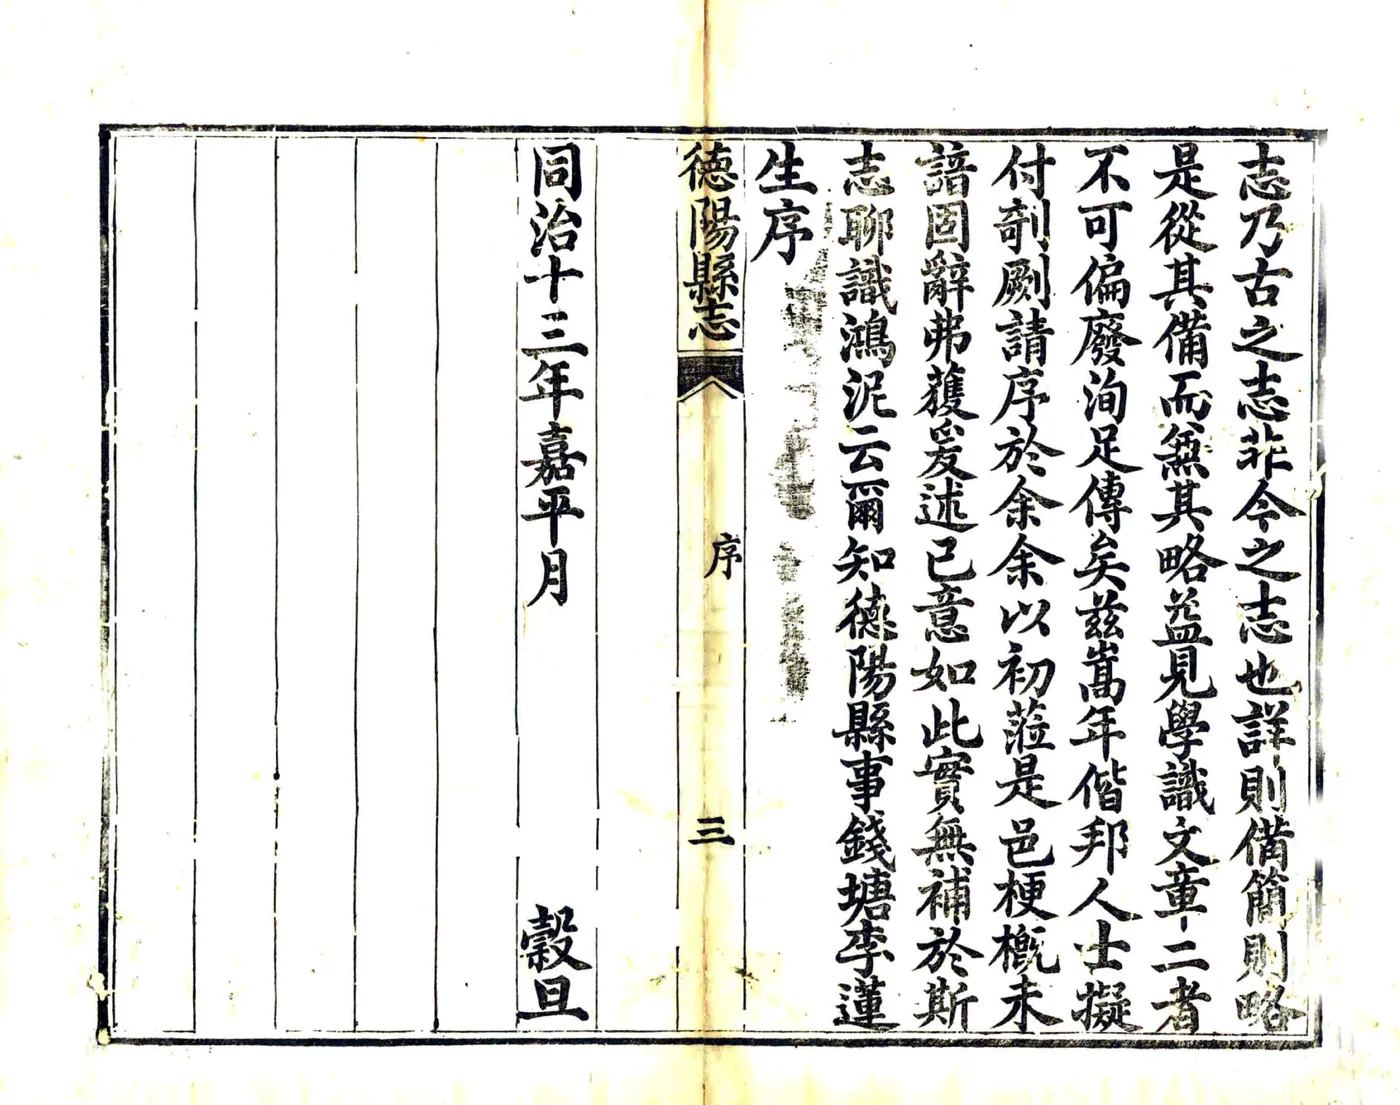 志乃古之志非今之志也詳則備簡則略
是從其備而無其略益見學識文章二者
不可偏廢洵足傳矣茲嵩年偕邦人士擬
付剞劂請序於余余以初蒞是邑梗概未
諳固辭弗獲爰述已意如此實無補於斯
志聊識鴻泥云爾知德陽縣事錢塘李蓮
生序
德陽縣志
序
三
同治十三年嘉平月
穀旦